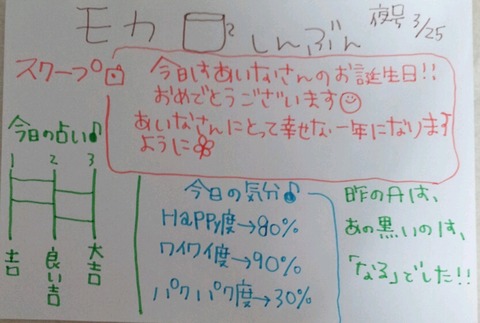 モカ 2 しんぶん 夜号 3/25
スクープ
今日はあいなさんのお誕生日!!
おめでとうございます
あいなさんにとって幸せな一年になります
ように
今日の占い♪
1 2 3
吉 良い吉 大吉
今日の気分♪
HaPPy度→80%
ワイワイ度→90%
パクパク度→30%
昨の丹は、
あの黒いのは、
「なる」でした!!